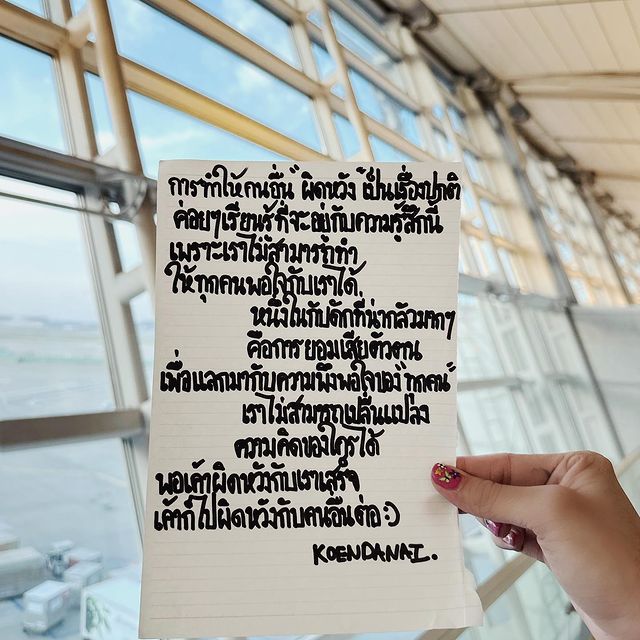 การทำให้คนอื่น "ผิดหวัง" เป็นเรื่องปกติ
ค่อยๆเรียนรู้ที่จะอยู่กับความรู้สึกนี้
เพราะเราไม่สามารถทำ
ให้ทุกคนพอใจกับเราได้.
หนึ่งในกับดักที่น่ากลัวมากๆ
คือการยอมเสียตัวตน
เพื่อแลกมากับความพึงพอใจของ "ทุกคน"
เราไม่สามารถเปลี่ยนแปลง
ความคิดของใครได้
พอเค้าผิดหวังกับเราเสร็จ
เค้าก็ไปผิดหวังกับคนอื่นต่อ :)
KOENDANAI.